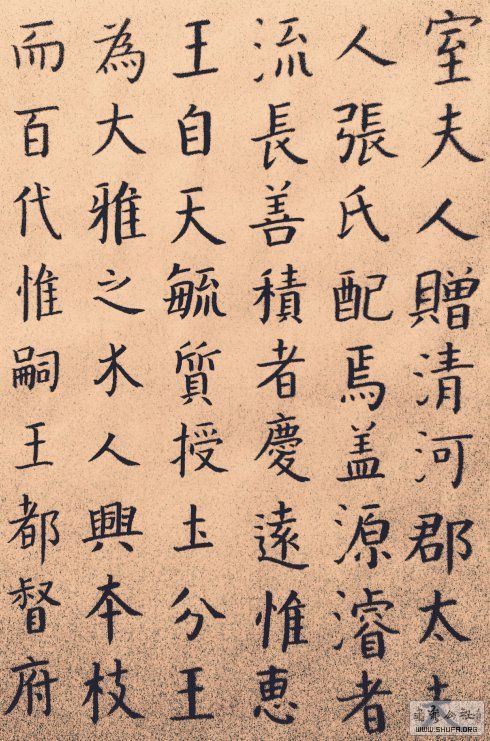 室夫人贈清河郡太
人張氏配焉盖源濬者
流長善積者慶遠惟恵
王自天毓質授土分王
為大雅之木人興本枝
而百代惟嗣王都督府
WWW.SHUFA.ORG